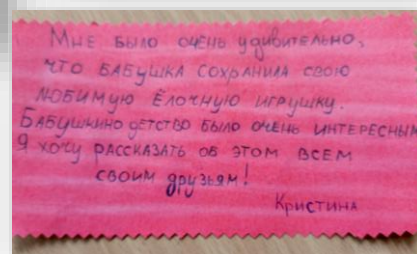 Мне было очень удивительно,
что бабушка сохранила свою
любимую ёлочную игрушку.
Бабушкино детство было очень интересным
Я хочу рассказать об этом всем
своим друзьям!
Кристина